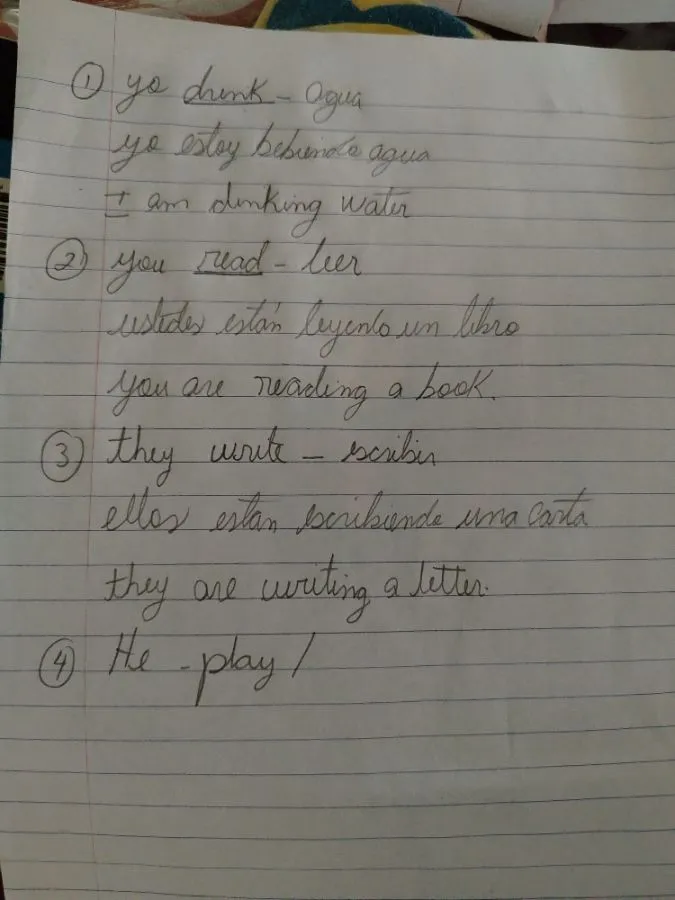 ① yo drink - agua
yo estoy bebiendo agua
I am drinking water
② you read - leer
ustedes están leyendo un libro
you are reading a book.
③ they write - escribir
ellos estan escribiendo una carta
they are writing a letter.
④ He - play /